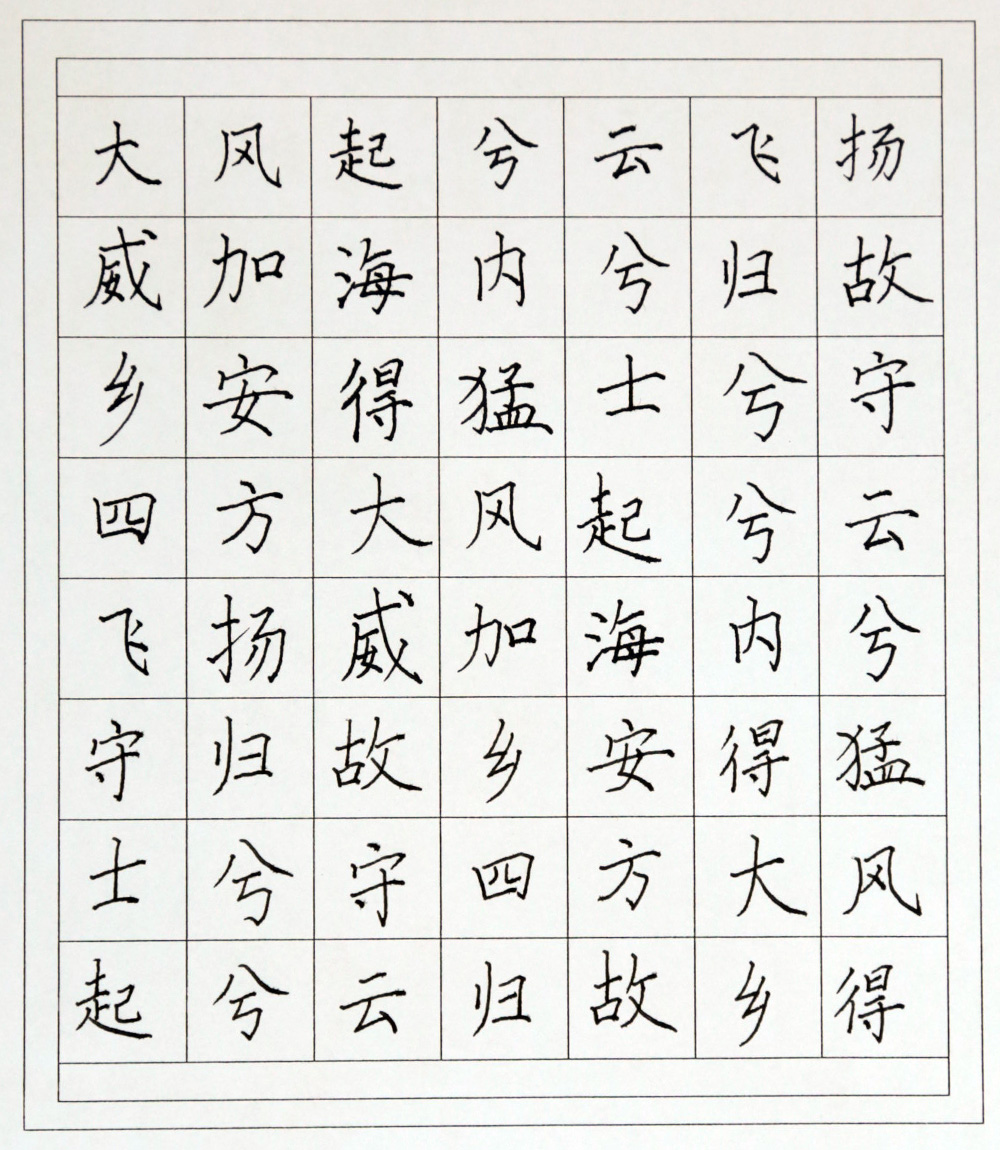 大风起兮云飞扬
威加海内兮归故
乡安得猛士兮守
四方大风起兮云
飞扬威加海内兮
守归故乡安得猛
士兮守四方大风
起兮云归故乡得